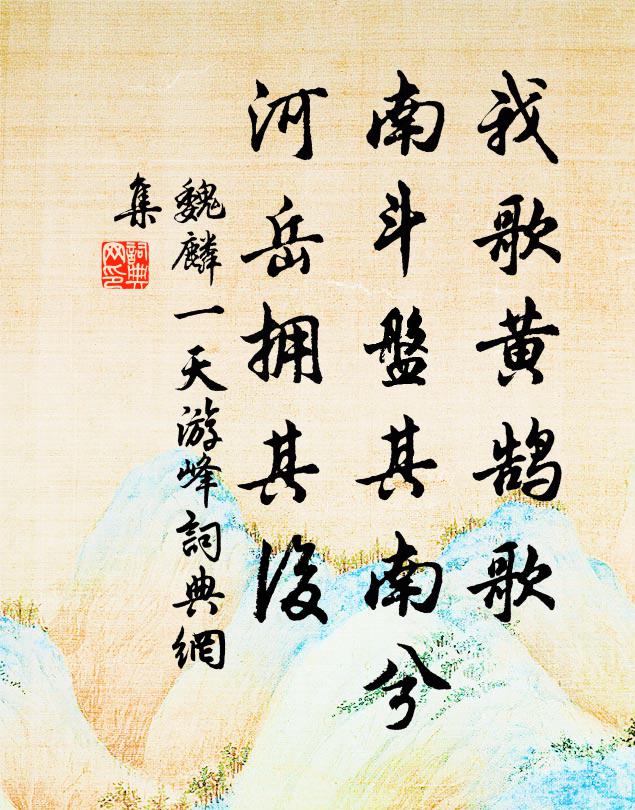 我歌黄鹄歌
南斗盤其南兮
河岳拥其後
魏麟一天游峰詞典網
集
詞典
网印